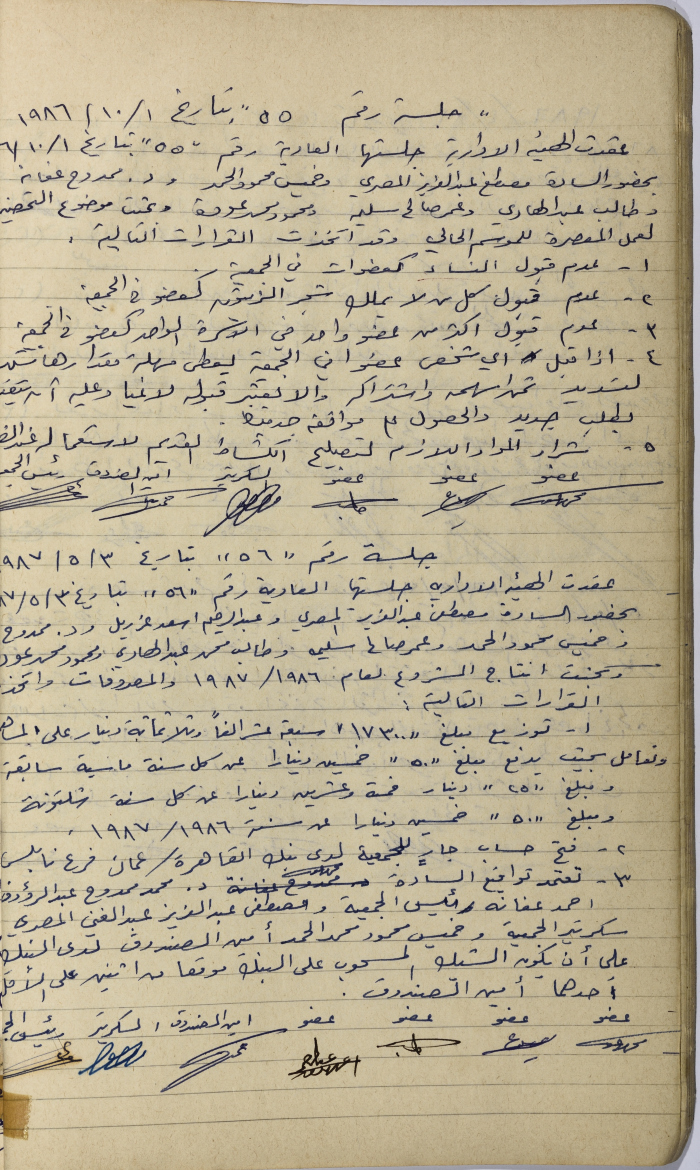 " جلسة رقم " ٥٥ " بتاريخ ١٠/١ / ١٩٨٦
عقدت الهيئة الادارية جلستها العادية رقم " ٥٥ " بتاريخ ١٠/١/
بحضور السادة مصطفى عبدالعزيز المصري وخميس محمود الحمد و د. ممدوح عفانة
وطالب عبد الهادي وعمر صالح سليم ومحمود محمد عودة وتمت موضوع
لعمل المعصرة للموسم الحالي وقد اتخذت القرارات التالية :
١ - عدم قبول النساء كعضوات في الجمعية .
٢ - عدم قبول كل من لا يملك شجر الزيتون كعضو في الجمعية
٣ - عدم قبول اكثر من عضو واحد في الاسرة الواحدة كعضو في الجمعية
٤ - اذا قبل اي شخص عضوا في الجمعية يعطى مهلة مقدارها
لتسديد ثمن اسهمه واشتراكه والا يعتبر قبوله لاغيا وعليه أن
بطلب جديد والحصول على موافقة جديدة .
٥ - شراء المواد اللازمة لتصليح القديم لاستعماله
عضو عضو عضو السكرتير امين الصندوق رئيس
جلسة رقم " ٥٦ " بتاريخ ٥/٣ /
عقدت الهيئة الادارية جلستها العادية رقم " ٥٦ " بتاريخ ٥/٣/
بحضور السادة مصطفى عبد العزيز المصري و عبدالرحيم اسعد و د. ممدوح
وخميس محمود الحمد وعمر صالح سليم وطالب محمد عبدالهادي ومحمود محمد
وبحثت انتاج المشروع لعام ١٩٨٦ / ١٩٨٧ والمصروفات
القرارات التالية :
١ - توزيع مبلغ " ١٧٣٠٠ " سبعة عشر الفاً وثلاثمائة دينار على
بحيث يدفع مبلغ " ٥٠ " خمسين دينارا عن كل سنة ماسية سابقة
ومبلغ " ٢٥ " دينار خمسة وعشرين دينارا عن كل سنة شلتونة
ومبلغ " ٥٠ " خمسين دينارا عن سنة ١٩٨٦ / ١٩٨٧ .
٢ - فتح حساب جارٍ للجمعية لدى بنك القاهرة / عمان فرع نابلس
٣ - تعتمد تواقيع السادة د. محمد ممدوح عبد الرؤوف
احمد عفانه رئيس الجمعية و مصطفى عبد العزيز عبد الغني المصري
سكرتير الجمعية و خميس محمود محمد الحمد أمين الصندوق لدى البنك
على أن يكون الشيك المسحوب على البنك موقعا من اثنين على الأقل
أحدهما أمين الصندوق .
عضو عضو عضو عضو امين الصندوق السكرتير رئيس